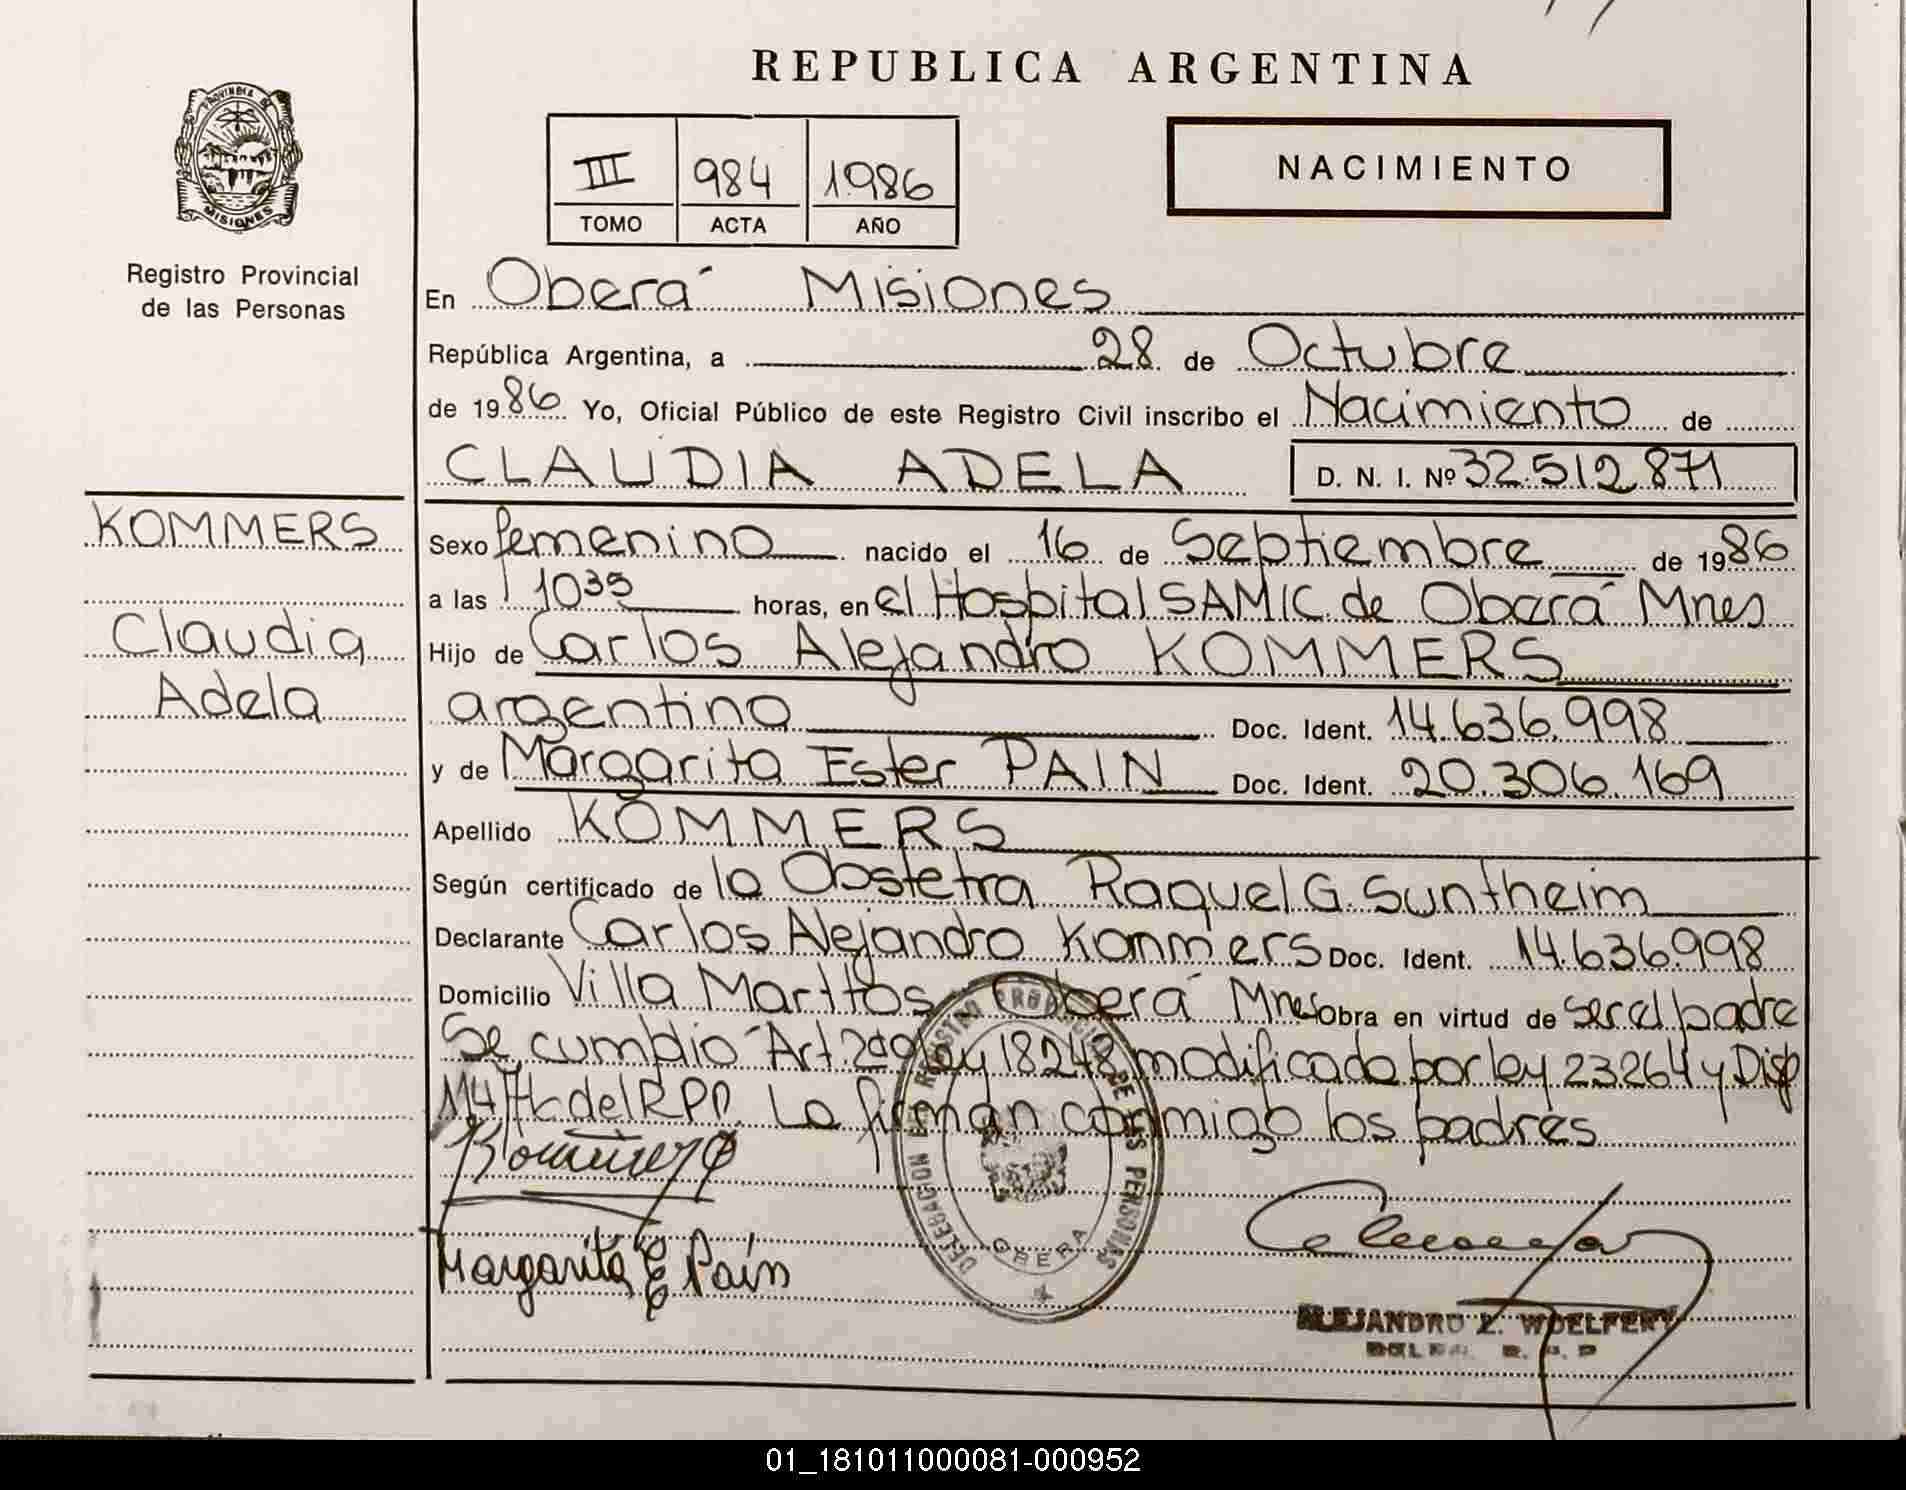 REPUBLICA ARGENTINA
PROVINCIA DE
MISIONES
Registro Provincial
de las Personas
III 984 1986
TOMO ACTA AÑO
NACIMIENTO
En Oberá Misiones
República Argentina, a 28 de Octubre
de 1986 Yo, Oficial Público de este Registro Civil inscribo el Nacimiento de
CLAUDIA ADELA D. N. I. Nº 32.512.871
KOMMERS
Claudia
Adela
Sexo femenino nacido el 16 de Septiembre de 1986
a las 1035 horas, en el Hospital SAMIC de Oberá Mnes
Hijo de Carlos Alejandro KOMMERS
argentino Doc. Ident. 14.636.998
y de Margarita Ester PAIN Doc. Ident. 20.306.169
Apellido KOMMERS
Según certificado de la Obstetra Raquel G. Suntheim
Declarante Carlos Alejandro Kommers Doc. Ident. 14.636.998
Domicilio Villa Oberá Mnes Obra en virtud de ser el padre
Se cumplio Art. ley 18248 modificado por ley 23264 y Disp
del RPP. La firman conmigo los padres
Margarita E Pain
DELEGACION DEL REGISTRO PROVINCIAL DE LAS PERSONAS
OBERA
ALEJANDRO L. WOELFERT
DELEG. R. P. P
01_181011000081-000952